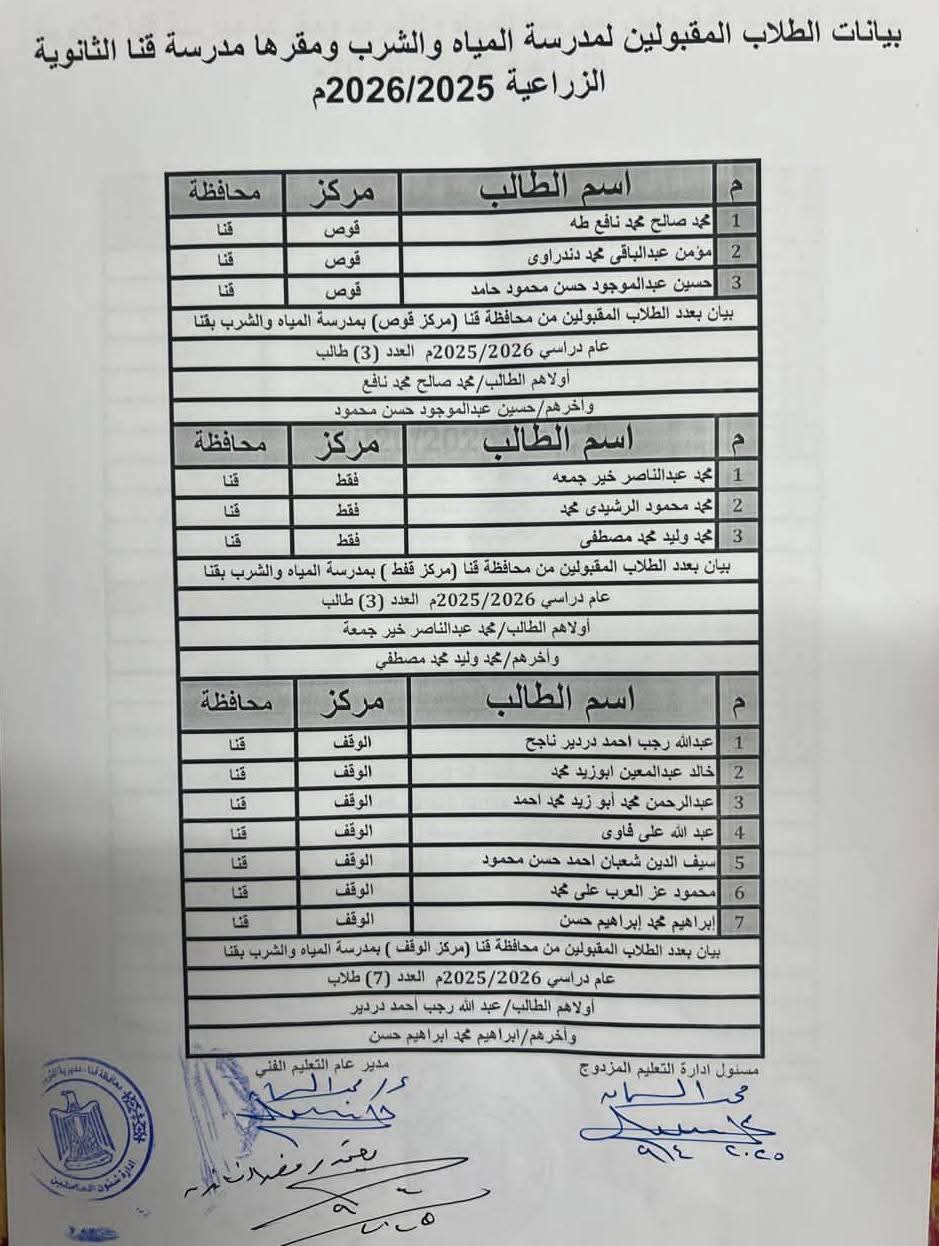 بيانات الطلاب المقبولين لمدرسة المياه والشرب ومقرها مدرسة قنا الثانوية
الزراعية 2026/2025م
م اسم الطالب مركز محافظة
1 محمد صالح محمد نافع طه قوص قنا
2 مؤمن عبدالباقى محمد دندراوى قوص قنا
3 حسين عبدالموجود حسن محمود حامد قوص قنا
بيان بعدد الطلاب المقبولين من محافظة قنا (مركز قوص) بمدرسة المياه والشرب بقنا
عام دراسي 2025/2026م العدد (3) طالب
أولاهم الطالب/محمد صالح محمد نافع
وأخرهم/حسين عبدالموجود حسن محمود
م اسم الطالب مركز محافظة
1 محمد عبدالناصر خير جمعه فقط قنا
2 محمد محمود الرشيدى محمد فقط قنا
3 محمد وليد محمد مصطفى فقط قنا
بيان بعدد الطلاب المقبولين من محافظة قنا (مركز قفط ) بمدرسة المياه والشرب بقنا
عام دراسي 2025/2026م العدد (3) طالب
أولاهم الطالب/محمد عبدالناصر خير جمعة
وأخرهم/محمد وليد محمد مصطفي
م اسم الطالب مركز محافظة
1 عبدالله رجب احمد دردير ناجح الوقف قنا
2 خالد عبدالمعين ابوزيد محمد الوقف قنا
3 عبدالرحمن محمد أبو زيد محمد احمد الوقف قنا
4 عبد الله على فاوى الوقف قنا
5 سيف الدين شعبان احمد حسن محمود الوقف قنا
6 محمود عز العرب على محمد الوقف قنا
7 إبراهيم محمد إبراهيم حسن الوقف قنا
بيان بعدد الطلاب المقبولين من محافظة قنا (مركز الوقف ) بمدرسة المياه والشرب بقنا
عام دراسي 2025/2026م العدد (7) طلاب
أولاهم الطالب/عبد الله رجب أحمد دردير
وأخرهم/ابراهيم محمد ابراهيم حسن
مسئول ادارة التعليم المزدوج مدير عام التعليم الفني
محمد السمان
٢٠٢٥ ٩/٤
يعتمد
محافظة قنا - مديرية
إدارة شئون